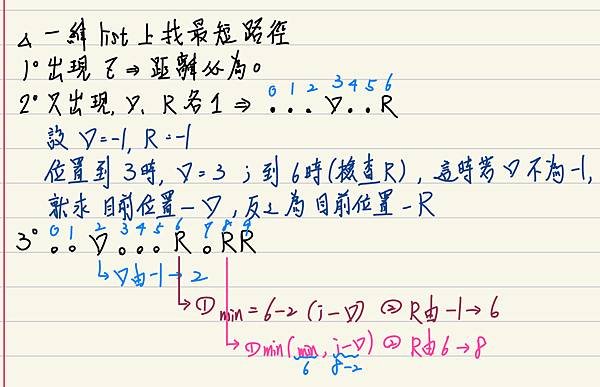 △ 一維 list 上找最短路徑
1° 出現 Z ⇒ 距離必為0
2° 只出現, D、R各1 ⇒ . . . D . . R
0 1 2 3 4 5 6
設 D=-1, R=-1
位置到 3時, D=3 ; 到 6時(檢查R), 這時若 D 不為-1,
就求 目前位置-D, 反之為 目前位置-R
0 1 2 3 4 5 6 7 8 9
3° . . D . . . R . R R
↳ D由-1→2
↳ ① min=6-2 (i-D) ② R由-1→6
↳ ① min(min, i-D) ② R由6→8
6 8-2